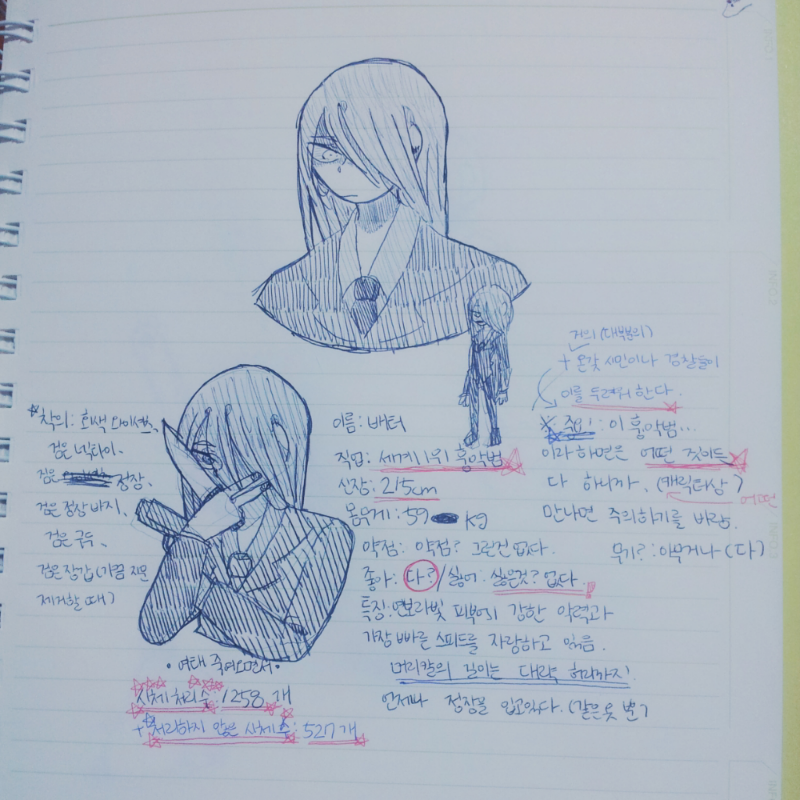 거의(대부분의)
+ 온갖 시민이나 경찰들이
이를 두려워 한다.
※ 주의! : 이 흉악범...
이라 하면은 어떤 것이든
다 하니까. (캐릭터상)
어떤
만나면 주의하기를 바람.
무기? : 아무거나 (다)
착의: 회색 와이셔츠
검은 넥타이.
검은 정장.
검은 정장 바지.
검은 구두.
검은 장갑 (가끔 지문
제거할 때)
이름: 배터
직업: 세계 1위 흉악범
신장: 215cm
몸무게: 59 kg
약점: 약점? 그런건 없다.
좋아: 다? / 싫어: 싫은것? 없다.
특징: 연보라빛 피부에 강한 악력과
가장 빠른 스피드를 자랑하고 있음.
머리칼의 길이는 대략 허리까지!
언제나 정장을 입고있다. (같은옷 반)
• 여태 죽여오면서 •
시체 처리 수 1258 개
+ 처리하지 않은 시체 수: 527개